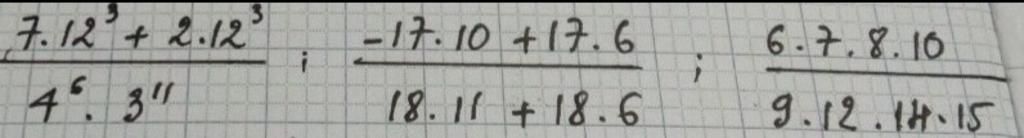 7.12³ + 2.12³ / 4⁶. 3¹¹ ; -17.10 + 17.6 / 18.11 + 18.6 ; 6.7.8.10 / 9.12.14.15